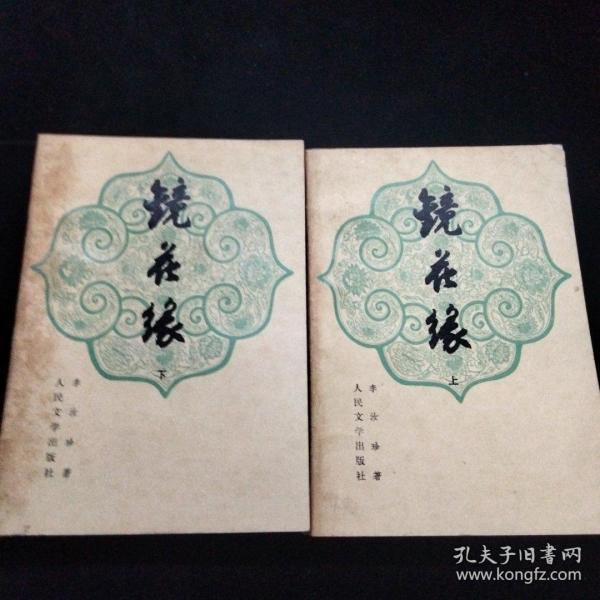 镜花缘
下
李汝珍著
人民文学出版社
镜花缘
上
李汝珍著
人民文学出版社
孔夫子旧书网
www.kongfz.com